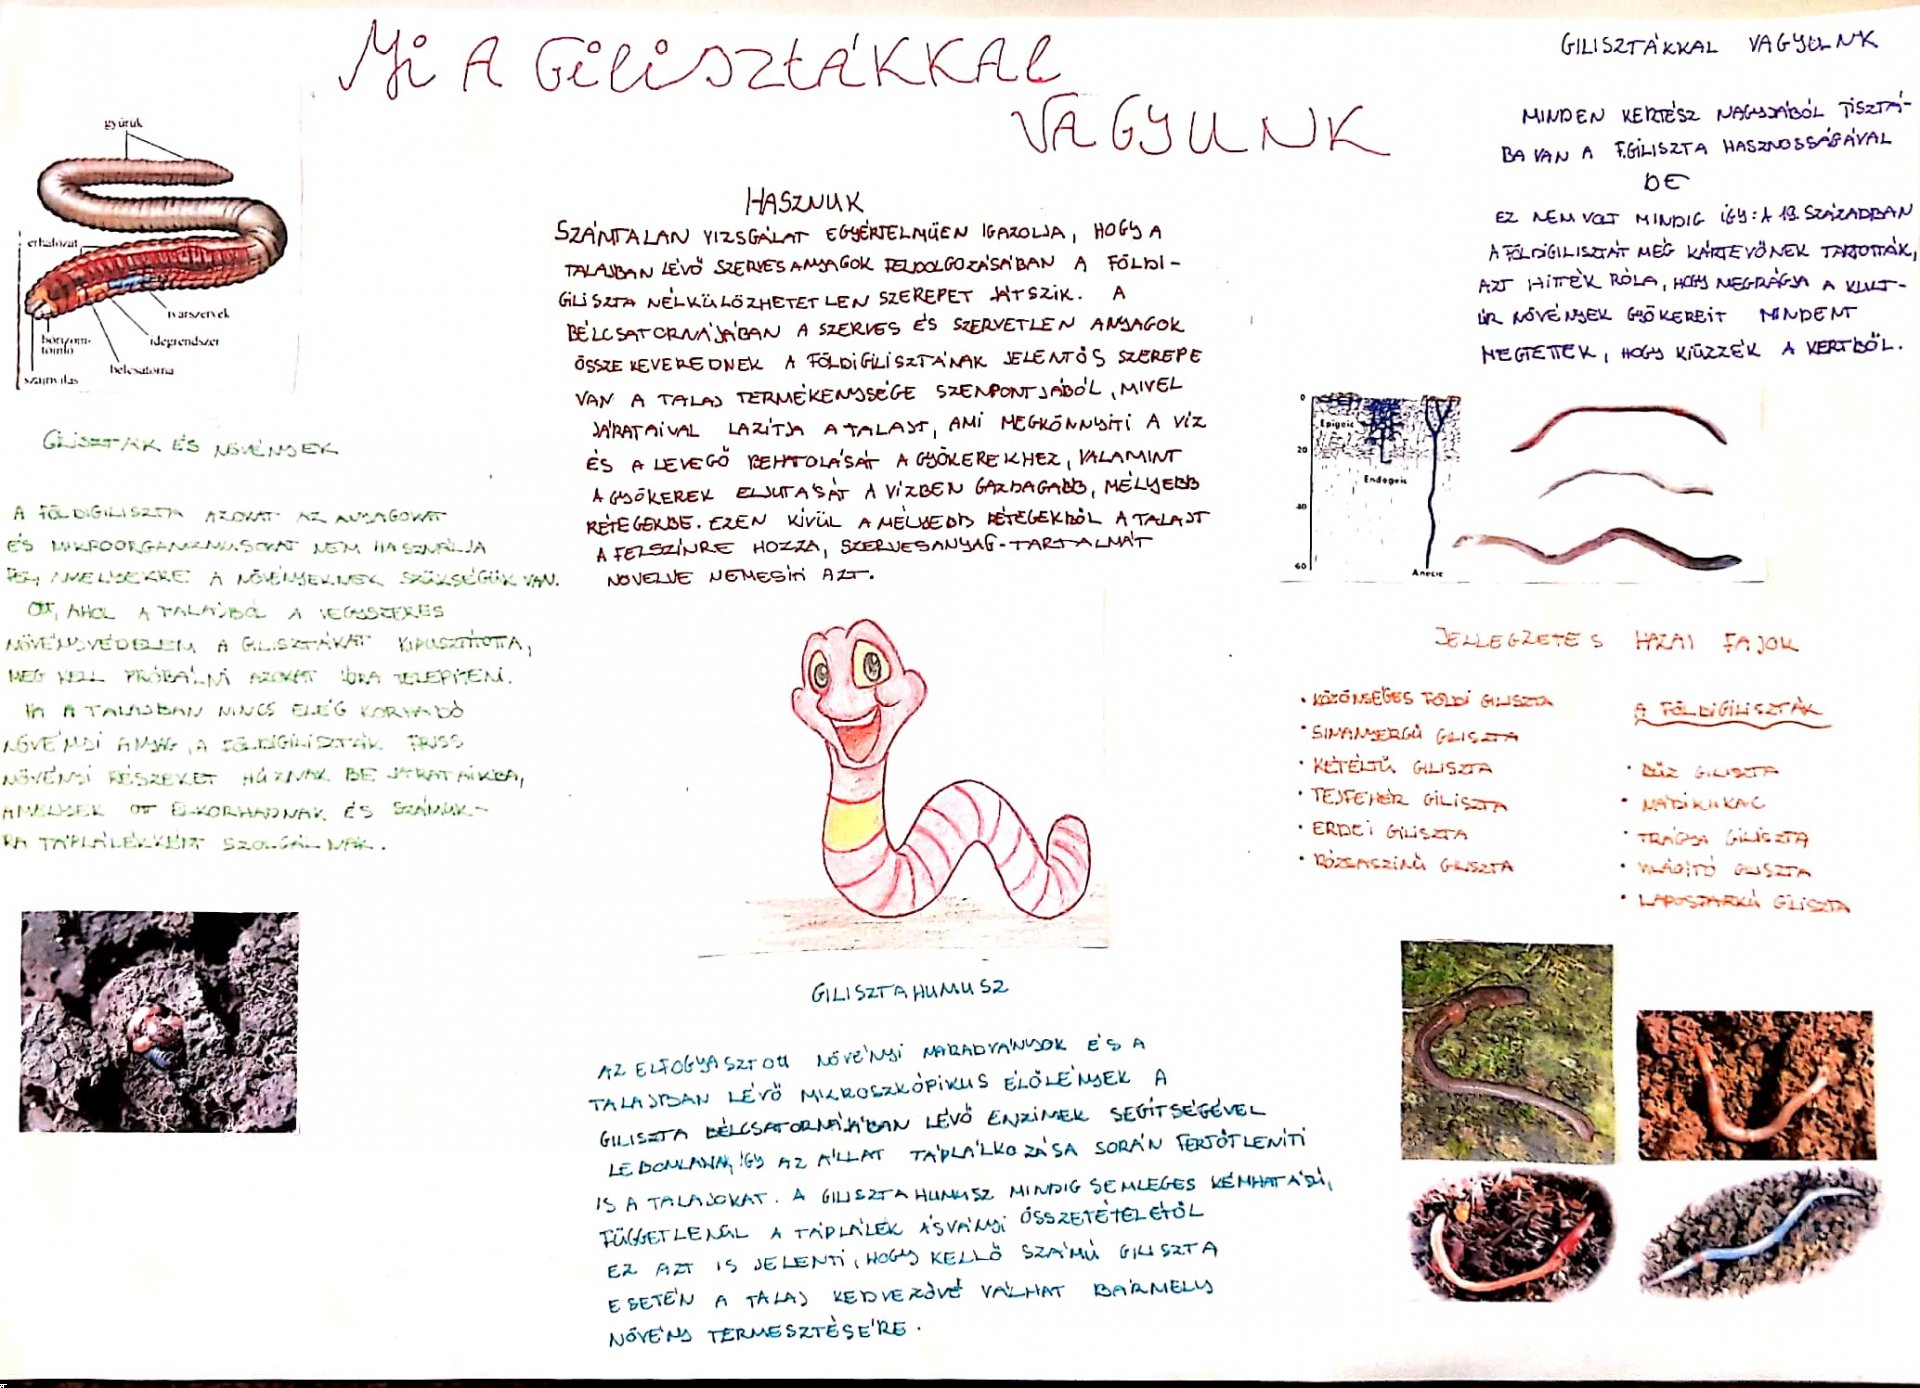 Mi A GiliSZtÁKKAl
VAGYUNK
gyűrűk
érhálózat
ivarszervek
idegrendszer
bélcsatorna
szájnyílás
GILISZTÁK ÉS NÖVÉNYEK
A FÖLDIGILISZTA AZOKAT AZ ANYAGOKAT
ÉS MIKROORGANIZMUSOKAT NEM HASZNÁLJA
FEL, AMELYEKRE A NÖVÉNYEKNEK SZÜKSÉGÜK VAN.
OTT, AHOL A TALAJBÓL A VEGYSZERES
NÖVÉNYVÉDELEM A GILISZTÁKAT KIPUSZTÍTOTTA,
MEG KELL PRÓBÁLNI AZOKAT ÚJRA TELEPÍTENI.
HA A TALAJBAN NINCS ELÉG KORHADÓ
NÖVÉNYI ANYAG, A FÖLDIGILISZTÁK FRISS
NÖVÉNYI RÉSZEKET HÚZNAK BE JÁRATAIKBA,
AMELYEK OTT ELKORHADNAK ÉS SZÁMUK-
RA TÁPLÁLÉKKÉNT SZOLGÁLNAK.
HASZNUK
SZÁMTALAN VIZSGÁLAT EGYÉRTELMŰEN IGAZOLJA, HOGY A
TALAJBAN LÉVŐ SZERVESANYAGOK FELDOLGOZÁSÁBAN A FÖLDI-
GILISZTA NÉLKÜLÖZHETETLEN SZEREPET JÁTSZIK. A
BÉLCSATORNÁJÁBAN A SZERVES ÉS SZERVETLEN ANYAGOK
ÖSSZEKEVEREDNEK A FÖLDIGILISZTÁNAK JELENTŐS SZEREPE
VAN A TALAJ TERMÉKENYSÉGE SZENPONTJÁBÓL, MIVEL
JÁRATAIVAL LAZÍTJA A TALAJT, AMI MEGKÖNNYÍTI A VÍZ
ÉS A LEVEGŐ BEHATOLÁSÁT A GYÖKEREKHEZ, VALAMINT
A GYÖKEREK ELJUTÁSÁT A VÍZBEN GAZDAGABB, MÉLYEBB
RÉTEGEKBE. EZEN KÍVÜL A MÉLYEBB RÉTEGEKBŐL A TALAJT
A FELSZÍNRE HOZZA, SZERVESANYAG-TARTALMÁT
NÖVELVE NEMESÍTI AZT.
GILISZTAHUMUSZ
AZ ELFOGYASZTOTT NÖVÉNYI MARADVÁNYOK ÉS A
TALAJBAN LÉVŐ MIKROSZKÓPIKUS ÉLŐLÉNYEK A
GILISZTA BÉLCSATORNÁJÁBAN LÉVŐ ENZIMEK SEGÍTSÉGÉVEL
LEBOMLANAK, ÍGY AZ ÁLLAT TÁPLÁLKOZÁSA SORÁN FERTŐTLENÍTI
IS A TALAJOKAT. A GILISZTAHUMUSZ MINDIG SEMLEGES KÉMHATÁSÚ,
FÜGGETLENÜL A TÁPLÁLÉK ÁSVÁNYI ÖSSZETÉTELÉTŐL
EZ AZT IS JELENTI, HOGY KELLŐ SZÁMÚ GILISZTA
ESETÉN A TALAJ KEDVEZŐVÉ VÁLHAT BÁRMELY
NÖVÉNY TERMESZTÉSÉRE.
GILISZTÁKKAL VAGYUNK
MINDEN KERTÉSZ NAGYJÁBÓL TISZTÁ-
BA VAN A F.GILISZTA HASZNOSSÁGÁVAL
DE
EZ NEM VOLT MINDIG ÍGY: A 19. SZÁZADBAN
A FÖLDIGILISZTÁT MÉG KÁRTEVŐNEK TARTOTTÁK,
AZT HITTÉK RÓLA, HOGY MEGRÁGJA A KULT-
ÚR NÖVÉNYEK GYÖKEREIT MINDENT
MEGTETTEK, HOGY KIŰZZÉK A KERTBŐL.
0
20
40
60
Epigeic
Endogeic
Anecic
JELLEGZETES HAZAI FAJOK
• KÖZÖNSÉGES FÖLDI GILISZTA
• SIMANYERGŰ GILISZTA
• KÉTÉLTŰ GILISZTA
• TEJFEHÉR GILISZTA
• ERDEI GILISZTA
• RÓZSASZÍNŰ GILISZTA
A FÖLDIGILISZTÁK
• BŰZ GILISZTA
• NADIKUKAC
• TRÁGYA GILISZTA
• VILÁGÍTÓ GILISZTA
• LAPOSFARKÚ GILISZTA